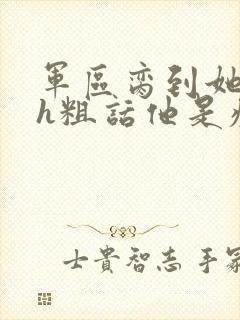 軍區离到她
h粗話他是
士貴智志 手冢